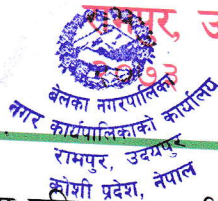 रामपुर, उ
२०७३
बेलका नगरपालिका
नगर कार्यपालिकाको कार्यालय
रामपुर, उदयपुर
कोशी प्रदेश, नेपाल